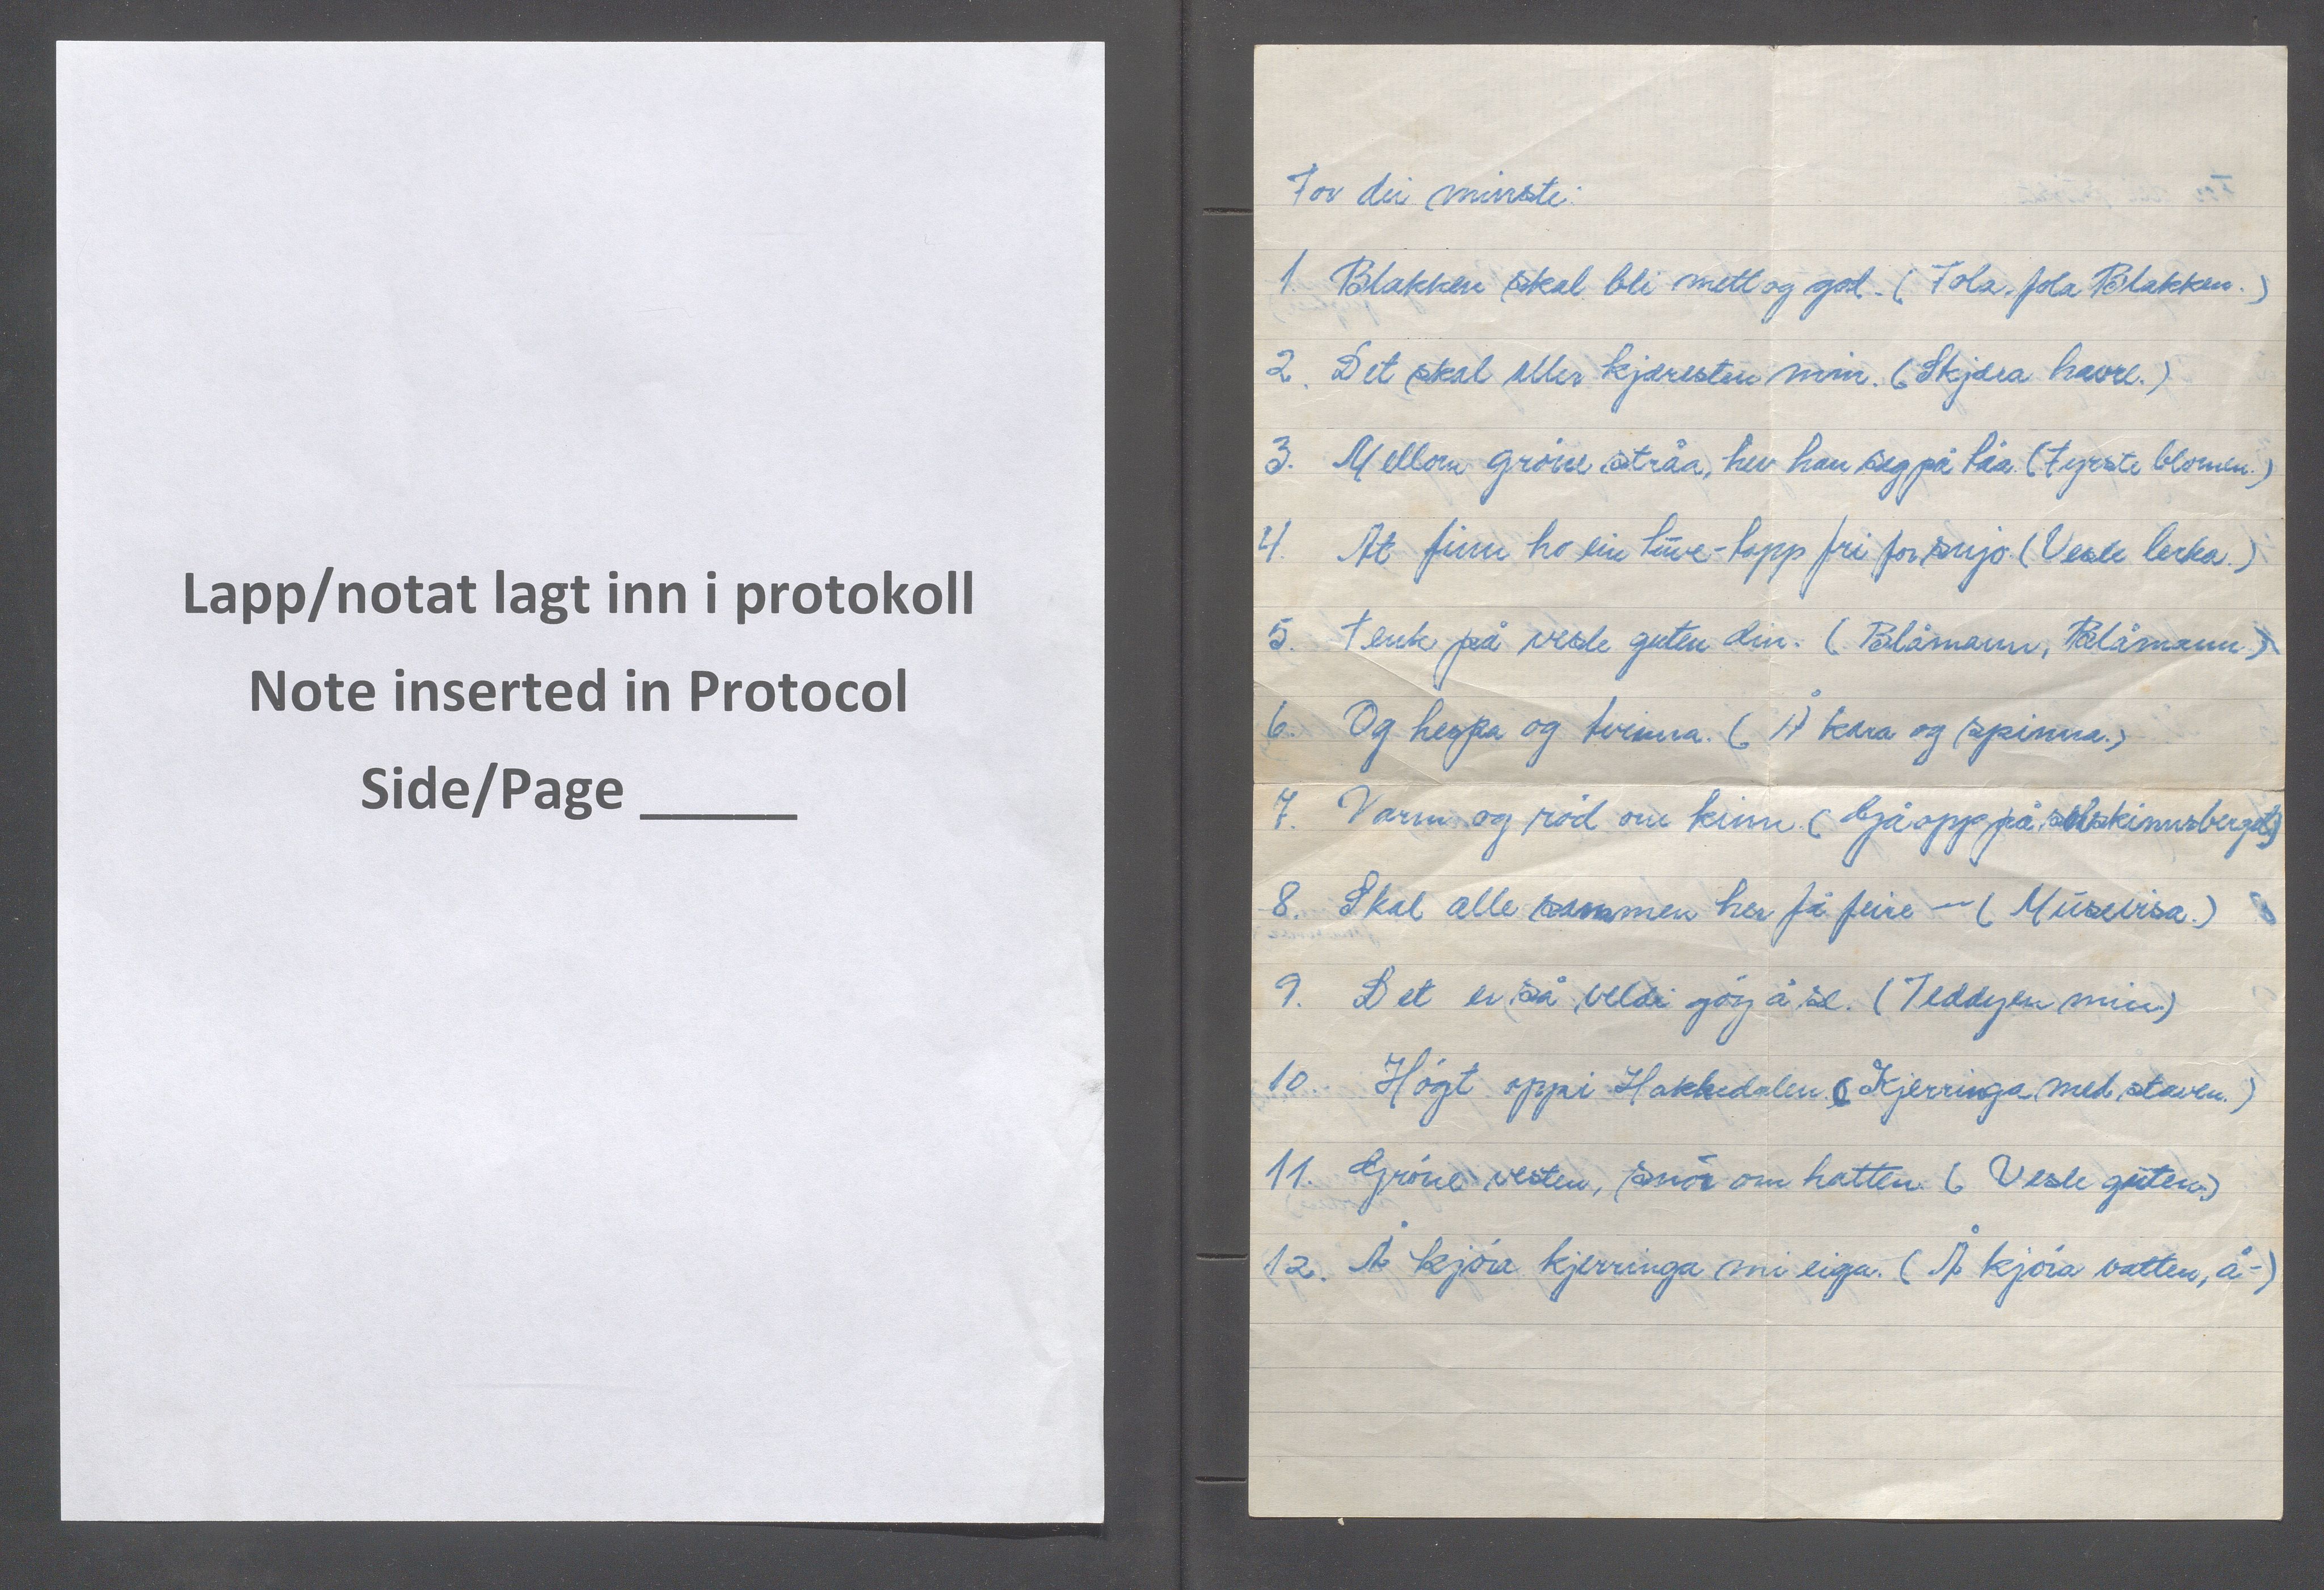 Lapp/notat lagt inn i protokoll
Note inserted in Protocol
Side/Page _____
For dei minste:
1. Blakken skal bli mett og god. (Fola, fola Blakken.)
2. Det skal eller kjæresten min. (Skjæra havre.)
3. Mellom grøne stråa, hev han seg på tåa. (Fyrste blomen.)
4. At finn ho ein tuve-topp fri for snjo. (Vesle lerka.)
5. Tenk på vesle guten din. (Blåmann, Blåmann)
6. Og hespa og tvinna. (Å kara og spinna.)
7. Varm og rød om kinn. (Gjå opp på solskinnsberget)
8. Skal alle sammen her få feire — (Musevisa.)
9. Det er så veldi gøy å se. (Teddyen min.)
10. Høgt oppi Hakkedalen. (Kjerringa med staven.)
11. Grøne vesten, snor om hatten. (Vesle guten.)
12. Å kjøra kjerringa mi eiga. (Å kjøra vatten, å -)